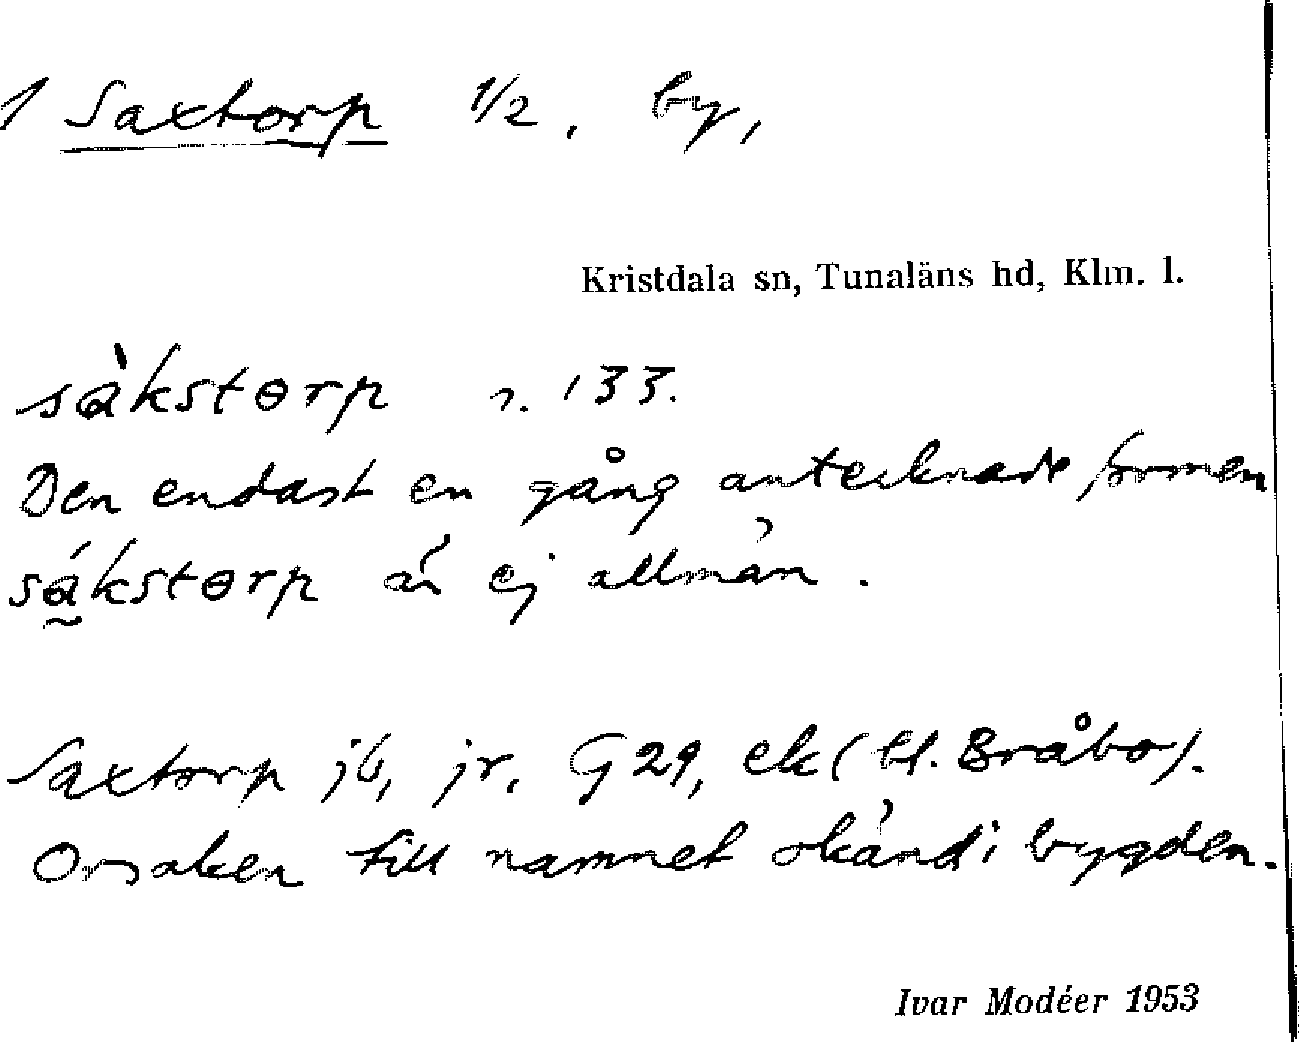 1 Saxtorp 1/2, by,
Kristdala sn, Tunaläns hd, Klm. l.
sàkstɵrp r. 133.
Den endast en gång antecknade formen
sá̰kstɵrp är ej allmän.
Saxtorp jb, jr, G 29, ek (bl. Bråbo).
Orsaken till namnet okänd i bygden.
Ivar Modéer 1953